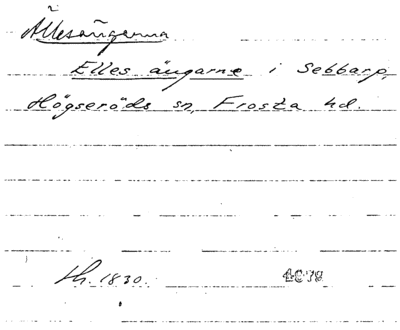 Ällesängarna
Elles ängarne i Sebbarp,
Högseröds sn, Frosta hd.
lh. 1830.